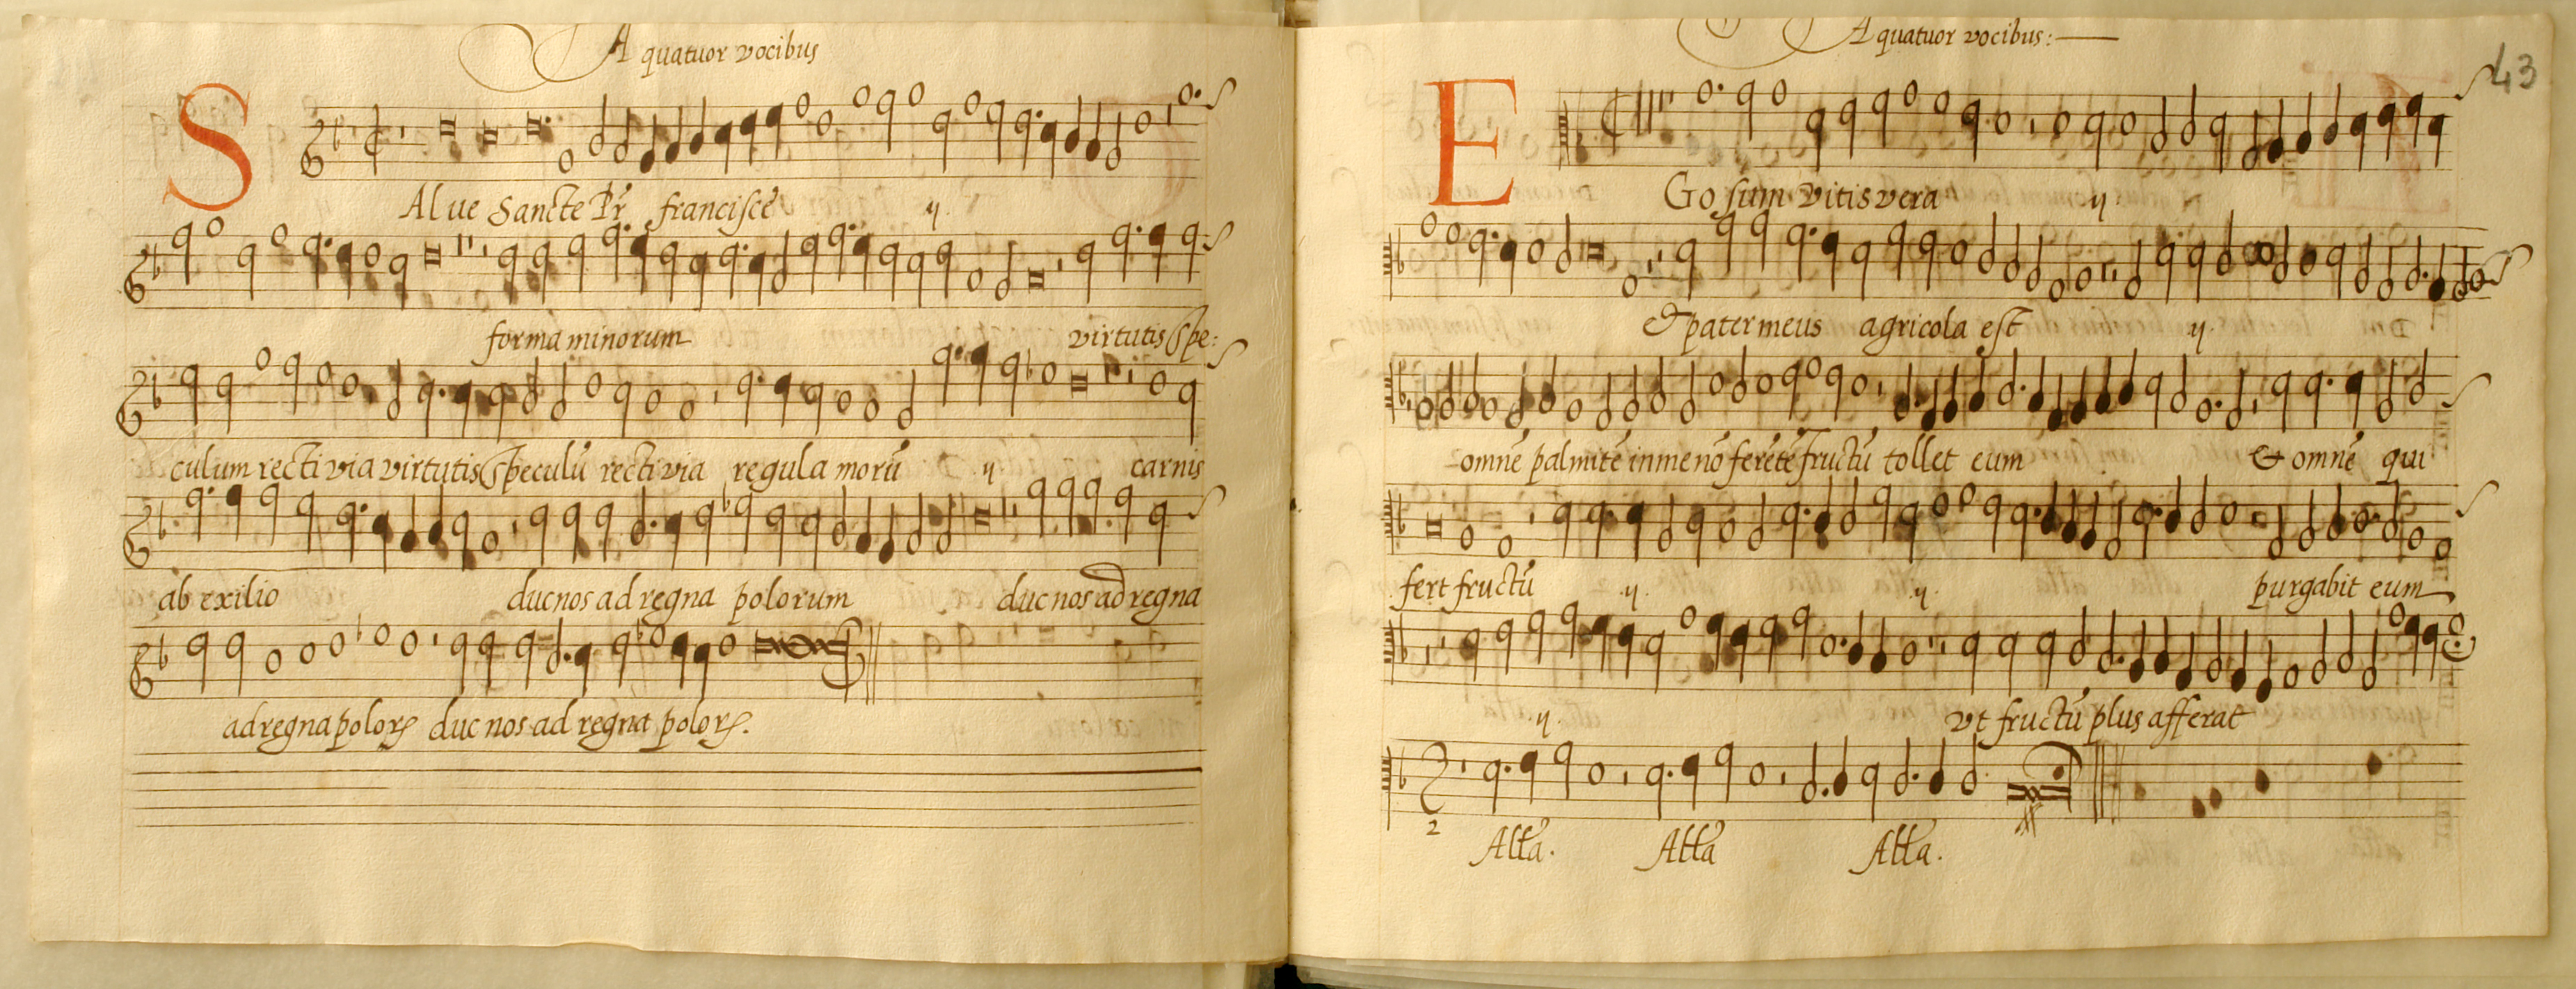 A quatuor vocibus
SAlve Sancte Pr̃ francisce ij.
forma minorum virtutis Spe:
culum recti via virtutis Speculũ recti via regula morũ ij carnis
ab exilio duc nos ad regna polorum duc nos ad regna
ad regna polorꝝ duc nos ad regna polorꝝ.
A quatuor vocibus:
43
EGo sum vitis vera ij.
& pater meus agricola est ij.
omnẽ palmitẽ in me nõ ferẽtẽ fructũ tollet eum & omnẽ qui
fert fructũ ij. ij. purgabit eum
ij. vt fructũ plus afferat
2
Alła. Alła Alła.